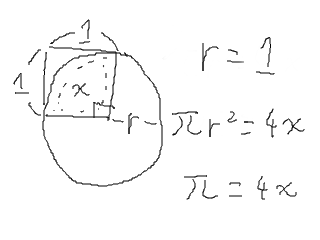 1
1
x
r
r = 1
πr² = 4x
π = 4x